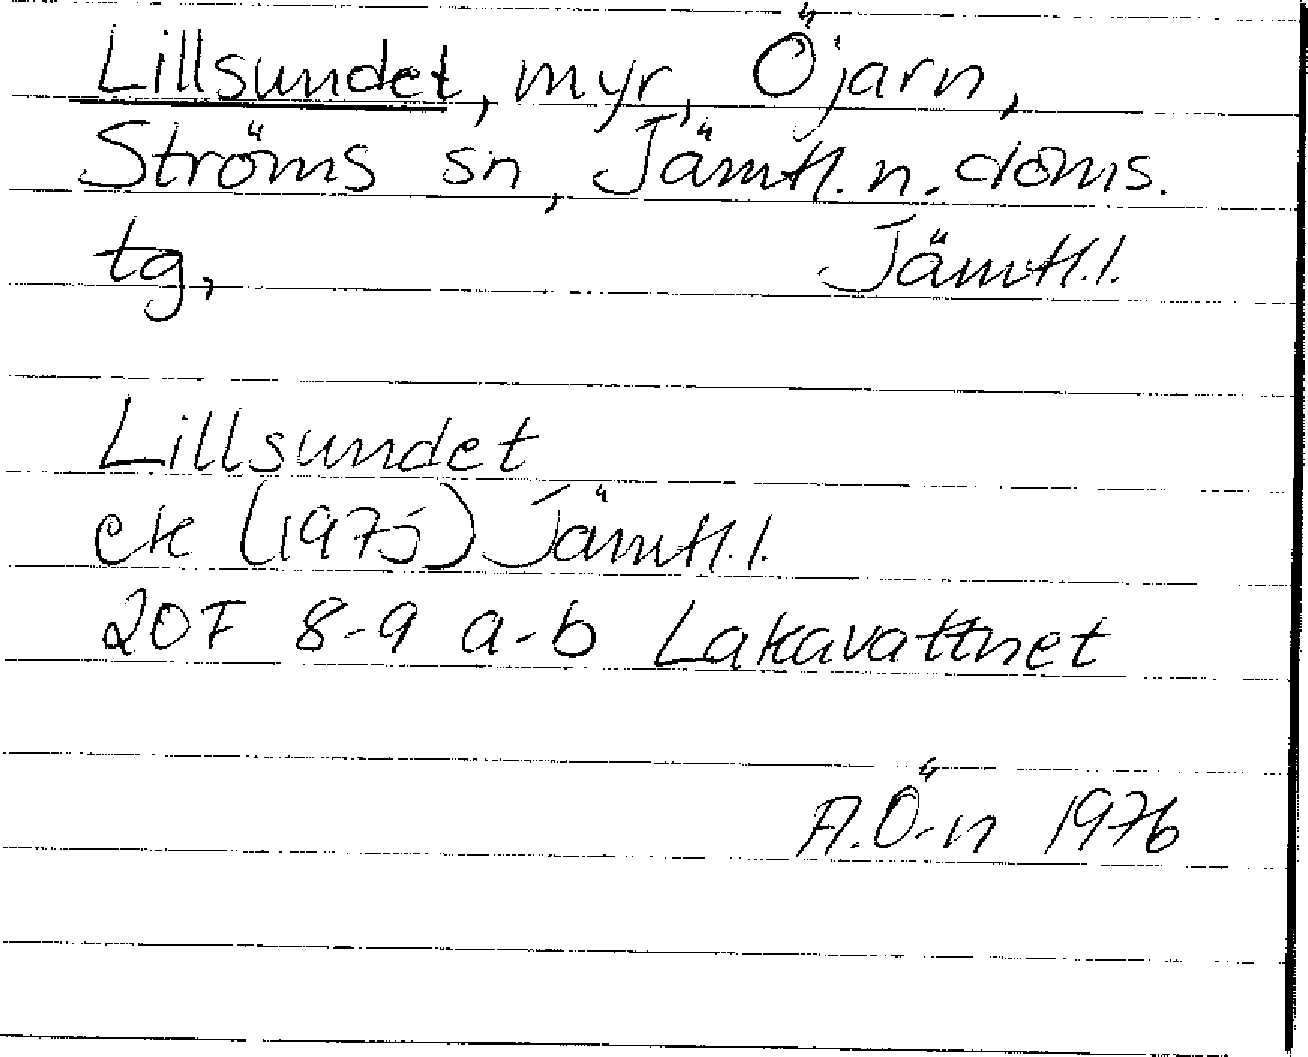 Lillsundet, myr, Öjarn,
Ströms sn, Jämtl. n. doms.
tg, Jämtl. l.
Lillsundet
ek (1975) Jämtl. l.
20F 8-9 a-b Lakavattnet
A.Ö-n 1976